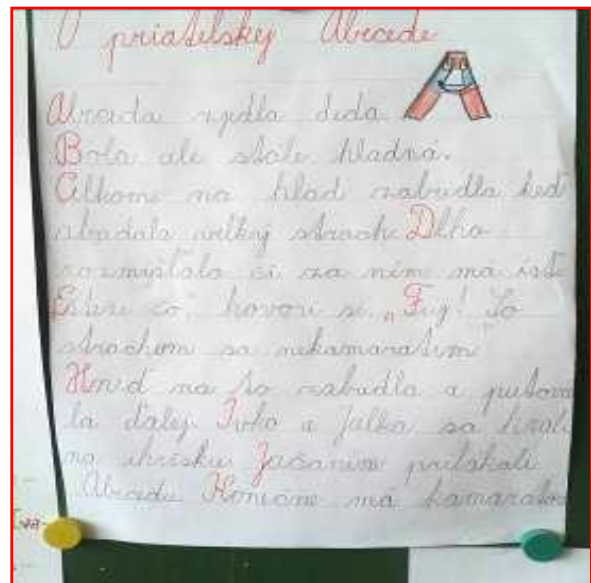 O priatelskej Abecede
Abeceda zjedla deda.
Bola ale stále hladná.
Celkom na hlad zabudla keď
zbadala veľký strach. Dlho
rozmýšľala či za ním má ísť
Ešte čo, hovorí si. „Fuj! So
strachom sa nekamarátim
Hneď na to zabudla a putova
la ďalej Ivko a Julka sa hrali
na ihrisku
Abecedu Konečne má kamarátov